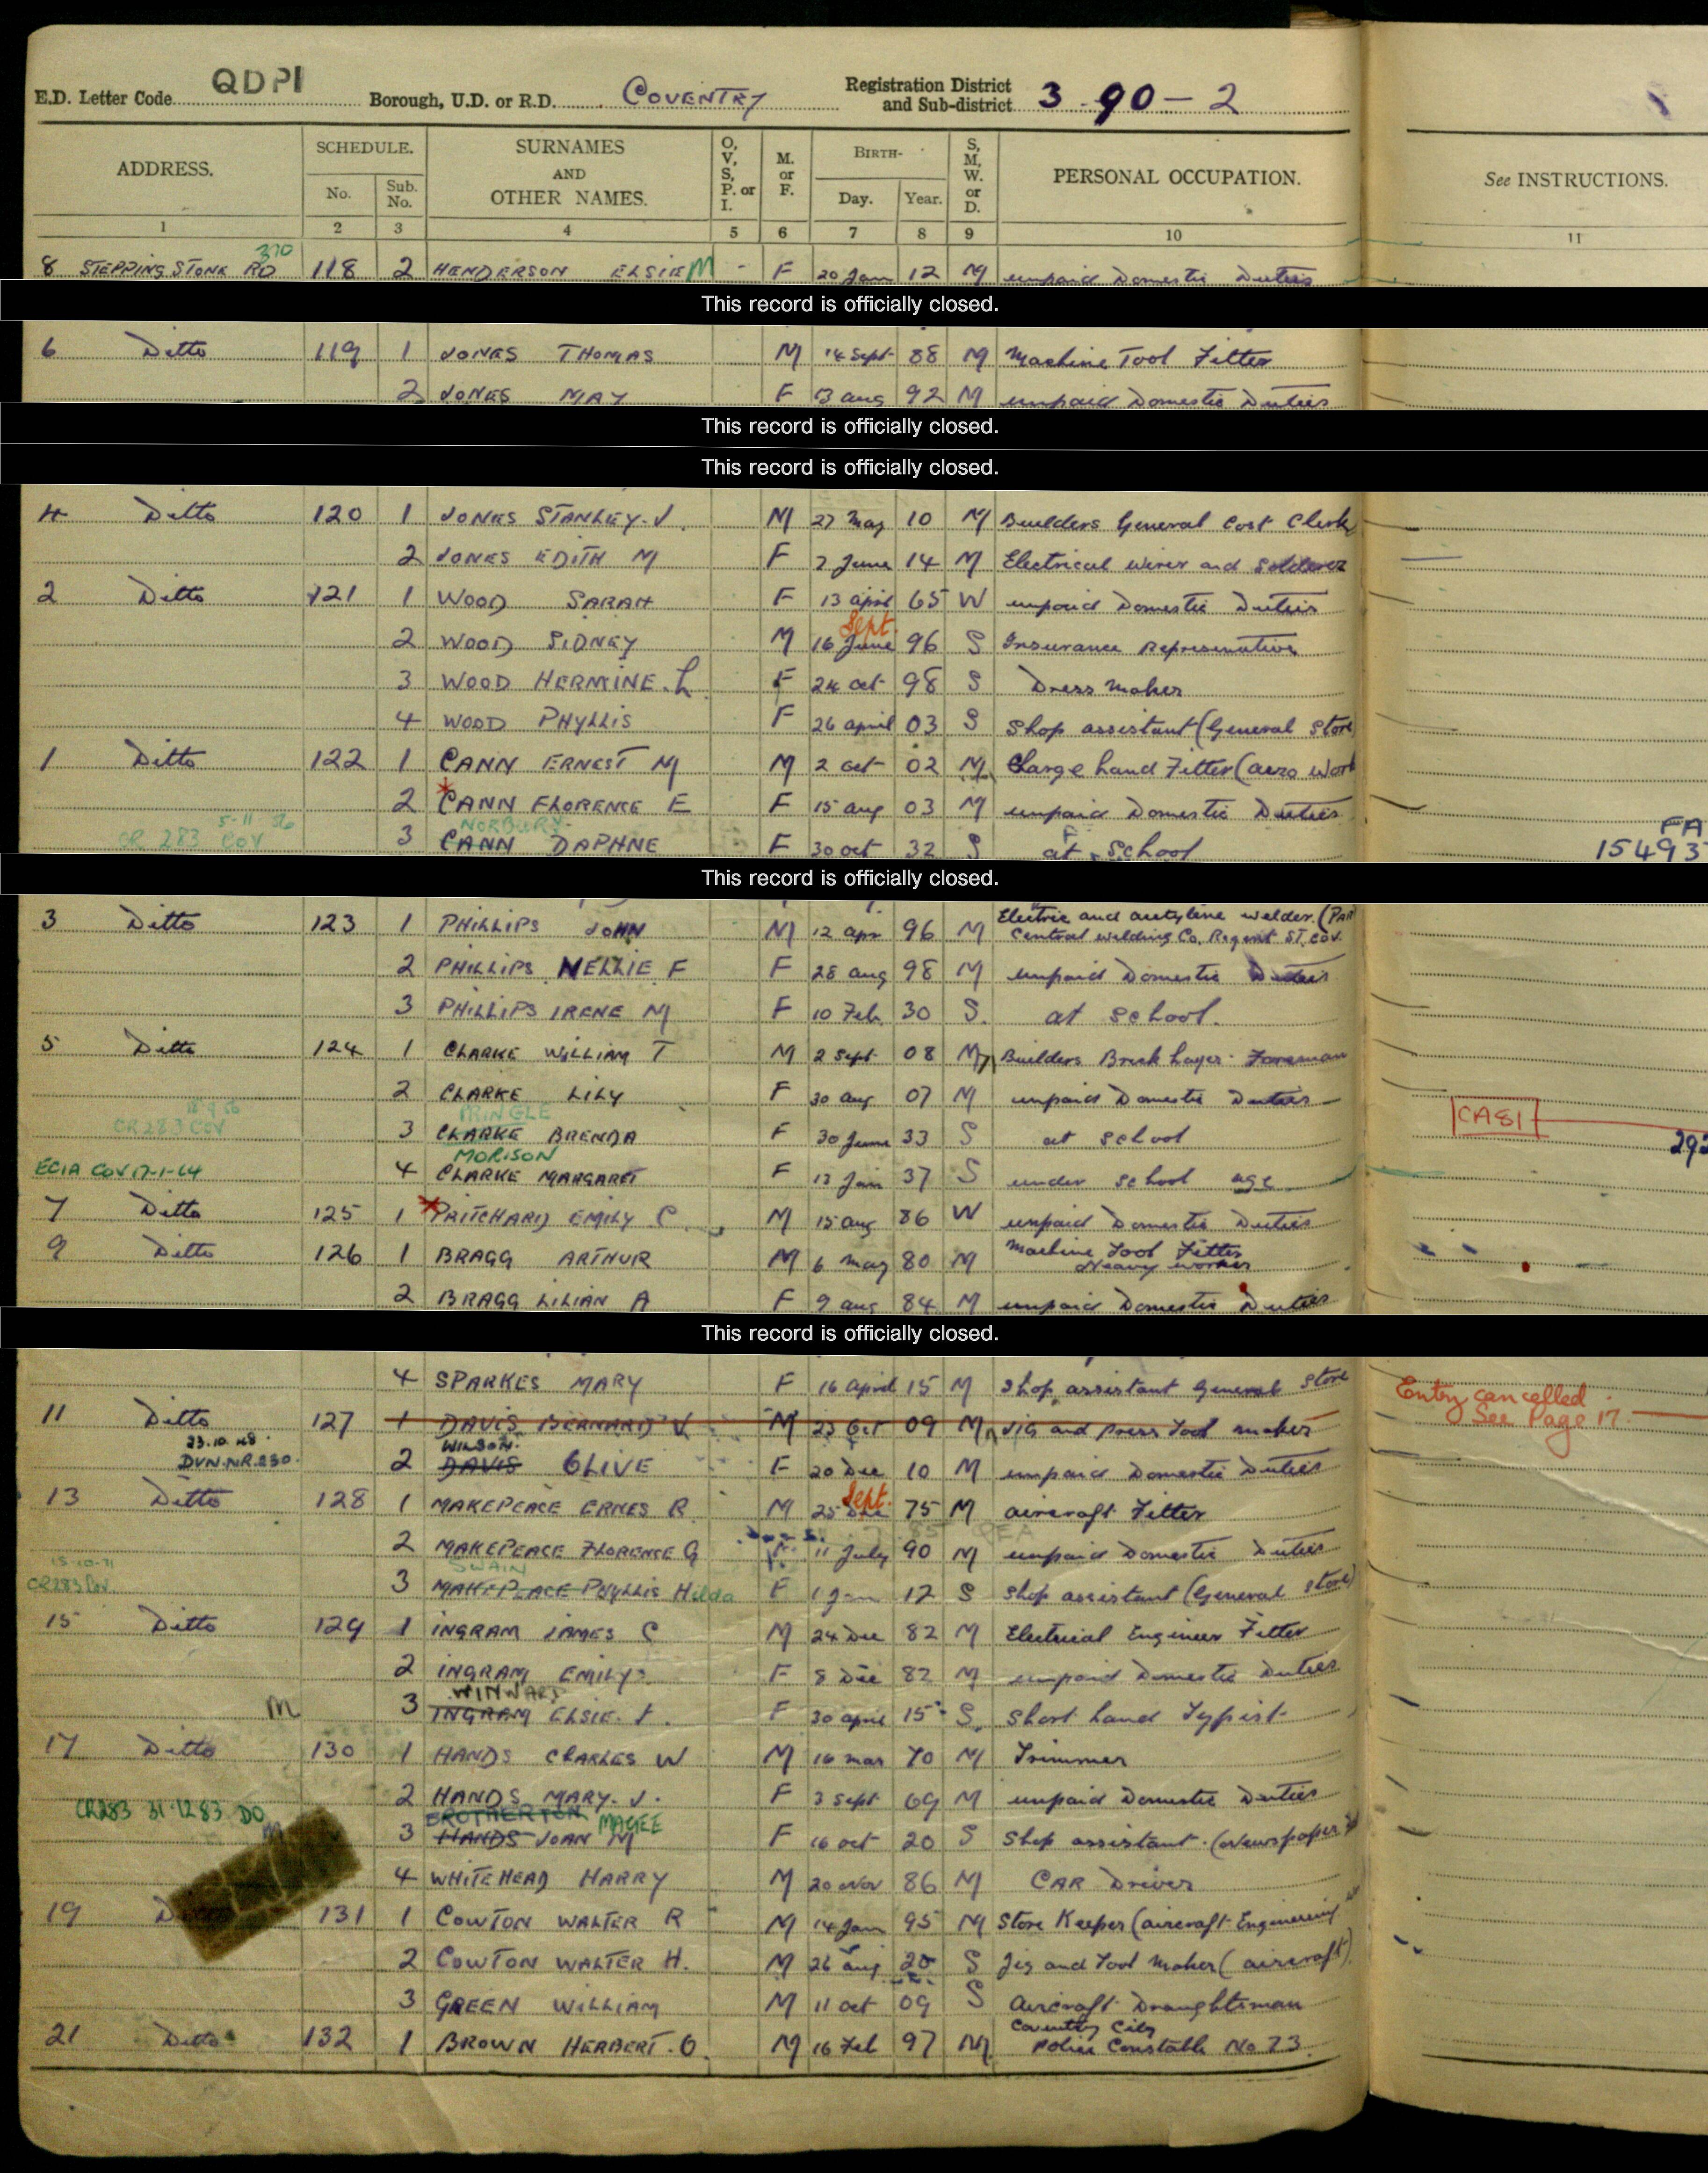 E.D. Letter Code QDPI Borough, U.D. or R.D. COVENTRY Registration District and Sub-district 3 90 - 2
ADDRESS. SCHEDULE. No. Sub. No. SURNAMES AND OTHER NAMES. O, V, S, P. or I. M. or F. BIRTH- Day. Year. S, M, W. or D. PERSONAL OCCUPATION. See INSTRUCTIONS.
1 2 3 4 5 6 7 8 9 10 11
370
8 STEPPING STONE RD 118 2 HENDERSON ELSIE M - F 20 Jan 12 M unpaid Domestic Duties
This record is officially closed.
6 Ditto 119 1 JONES THOMAS M 14 Sept 88 M Machine Tool Fitter
2 JONES MAY F 13 aug 92 M unpaid Domestic Duties
This record is officially closed.
This record is officially closed.
4 Ditto 120 1 JONES STANLEY. J. M 27 May 10 M Builders General Cost Clerk
2 JONES EDITH M F 2 June 14 M Electrical wirer and Solderer
2 Ditto 121 1 WOOD SARAH F 13 april 65 W unpaid Domestic Duties
Sept.
2 WOOD SIDNEY M 16 June 96 S Insurance Representative
3 WOOD HERMINE. L. F 24 oct 98 S Dress Maker
4 WOOD PHYLLIS F 26 april 03 S Shop assistant (General Store
1 Ditto 122 1 CANN ERNEST M M 2 oct 02 M Charge hand Fitter (aero Work
2 CANN FLORENCE E F 15 aug 03 M unpaid Domestic Duties
5-11 56 NORBURY FA
CR 283 COV 3 CANN DAPHNE F 30 oct 32 S at School 15493
This record is officially closed.
3 Ditto 123 1 PHILLIPS JOHN M 12 apr 96 M Electric and acetylene welder. (Par
Central Welding Co, Regent ST. COV.
2 PHILLIPS NELLIE F F 28 aug 98 M unpaid Domestic Duties
3 PHILLIPS IRENE M F 10 Feb 30 S. at School.
5 Ditto 124 1 CLARKE WILLIAM T M 2 Sept 08 M Builders Brick layer Foreman
2 CLARKE LILY F 30 aug 07 M unpaid Domestic Duties
PRINGLE CA81
CR 283 COV 3 CLARKE BRENDA F 30 June 33 S at School 292
MORISON
ECIA COV 17-1-64 4 CLARKE MARGARET F 13 Jan 37 S under School age
7 Ditto 125 1 PRITCHARD EMILY C. M 15 aug 86 W unpaid Domestic Duties
9 Ditto 126 1 BRAGG ARTHUR M 6 May 80 M Machine Tool Fitter
Heavy worker
2 BRAGG LILIAN A F 9 aug 84 M unpaid Domestic Duties
This record is officially closed.
4 SPARKES MARY F 16 april 15 M Shop assistant General Store
Entry cancelled
See Page 17.
11 Ditto 127 1 DAVIS BERNARD V M 23 Oct 09 M JIG and Press Tool maker
23.10.48. WILSON.
DVN.NR.230. 2 DAVIS OLIVE F 20 Dec 10 M unpaid Domestic Duties
Sept.
13 Ditto 128 1 MAKEPEACE ERNES R M 25 Dec 75 M aircraft Fitter
2 MAKEPEACE FLORENCE G F 11 July 90 M unpaid Domestic Duties
15-10-71 SWAIN
CR283 Cov. 3 MAKEPEACE Phyllis Hilda F 1 Jan 12 S Shop assistant (General Store)
15 Ditto 129 1 INGRAM JAMES C M 24 Dec 82 M Electrical Engineer Fitter
2 INGRAM EMILY F 8 Dec 82 M unpaid Domestic Duties
WINWARD
M 3 INGRAM ELSIE. F 30 april 15 S. Short hand Typist
17 Ditto 130 1 HANDS CHARLES W M 16 mar 70 M Trimmer
2 HANDS MARY. J. F 3 Sept 69 M unpaid Domestic Duties
CR283 31.12.83 DO BROTHERTON MAGEE
3 HANDS JOAN M F 16 oct 20 S Shop assistant. (Newspaper
4 WHITEHEAD HARRY M 20 Nov 86 M CAR Driver
19 D 131 1 COWTON WALTER R M 14 Jan 95 M Store Keeper (aircraft Engineering
2 COWTON WALTER H. M 26 aug 20 S Jig and Tool Maker (aircraft)
3 GREEN WILLIAM M 11 oct 09 S Aircraft Draughtsman
Coventry City
21 Ditto 132 1 BROWN HERBERT. O. M 16 Feb 97 M Police Constable No 73.